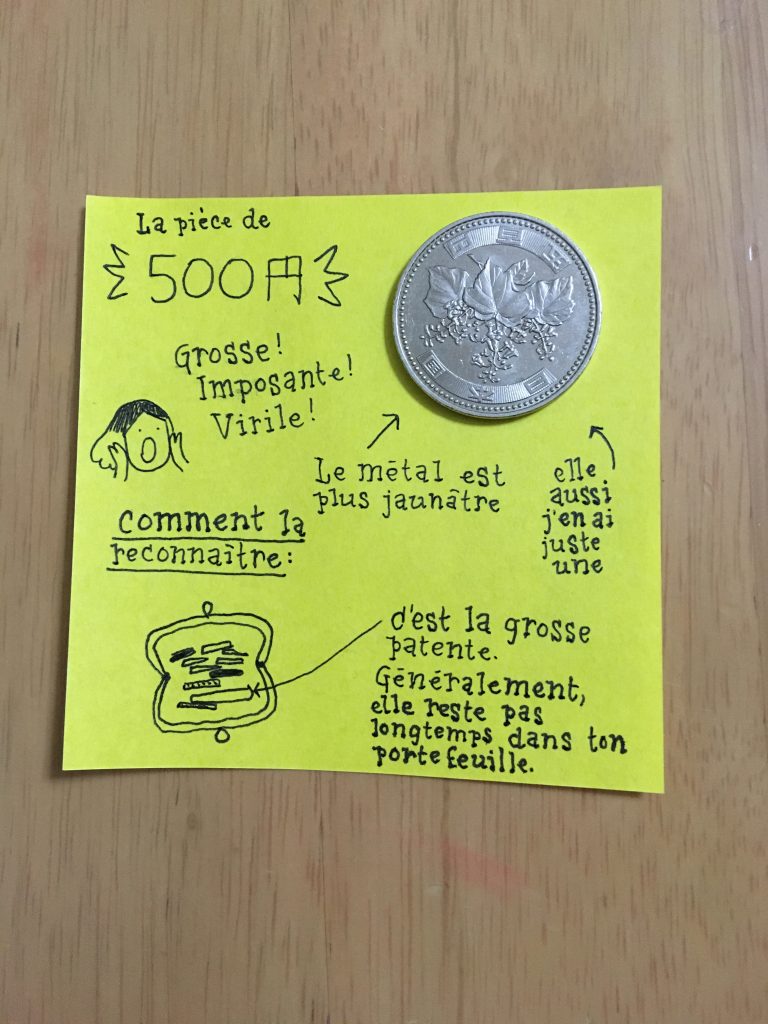 La pièce de
500円
Grosse!
Imposante!
Virile!
Le métal est
plus jaunâtre
elle
aussi
j'en ai
juste
une
comment la
reconnaître:
c'est la grosse
patente.
Généralement,
elle reste pas
longtemps dans ton
portefeuille.
五百円
日本国